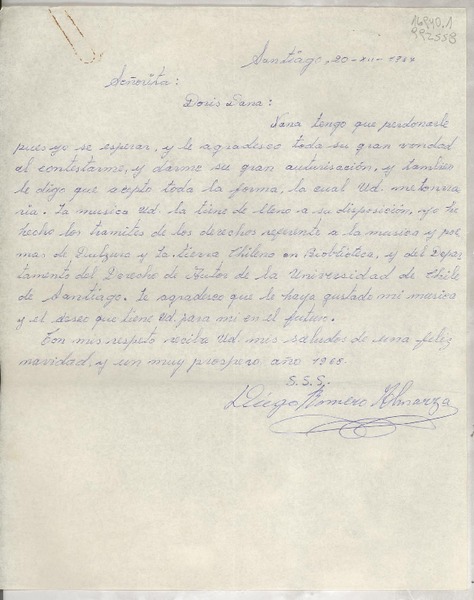 16990.1
992558
Santiago, 20-XII-1967
Señorita:
Doris Dana:
Nana tengo que perdonarle
pues yo se esperar, y le agradesco toda su gran vondad
al contestarme, y darme su gran auturisación, y tambien
le digo que acepto toda la forma, la cual Ud.
ria. La musica Ud. la tiene de lleno a su disposición, yo he
hecho los tramites de los derechos referente a la musica y poe
mas de Dulzura y La tierra Chilena en Biobliotica, y del Depar
tamento del Derecho de Autor de la Universidad de Chile
de Santiago. Le agradesco que le haya gustado mi musica
y el deseo que tiene Ud. para mi en el futuro.
Con mis respeto reciba Ud. mis saludos de una feliz
navidad y un muy prospero año 1968.
S.S.S.
Hugo Romero Almarza